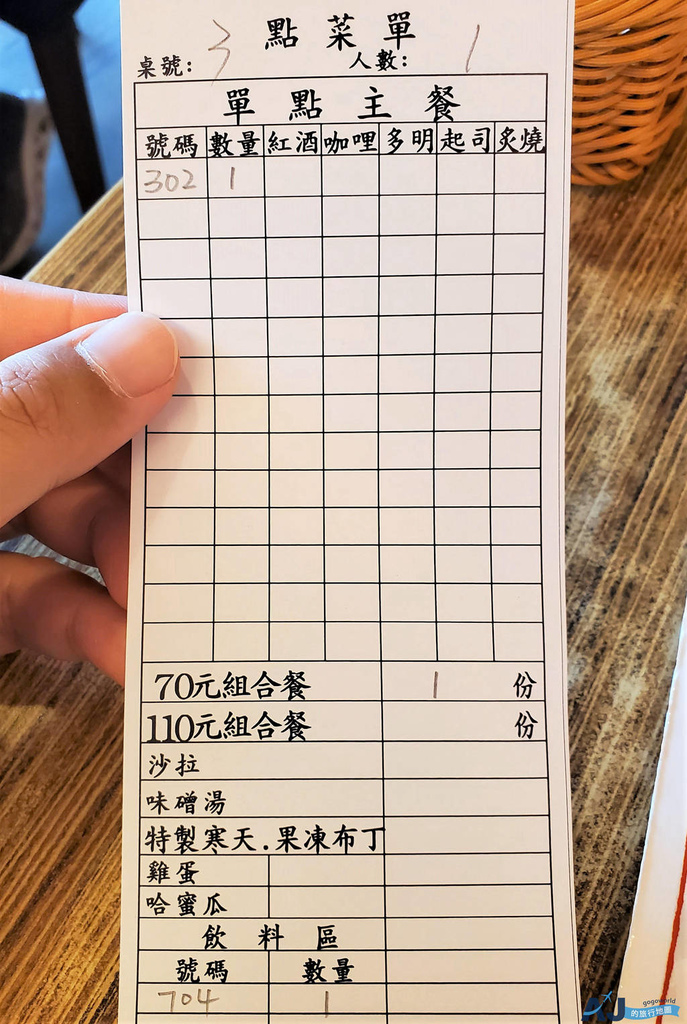 點菜單
桌號: 3 人數: 1
單點主餐
號碼 數量 紅酒 咖哩 多明 起司 炙燒
302 1
70元組合餐 1 份
110元組合餐 份
沙拉
味磳湯
特製寒天.果凍布丁
雞蛋
哈蜜瓜
飲料區
號碼 數量
704 1
AJ gogoworld
的旅行地圖